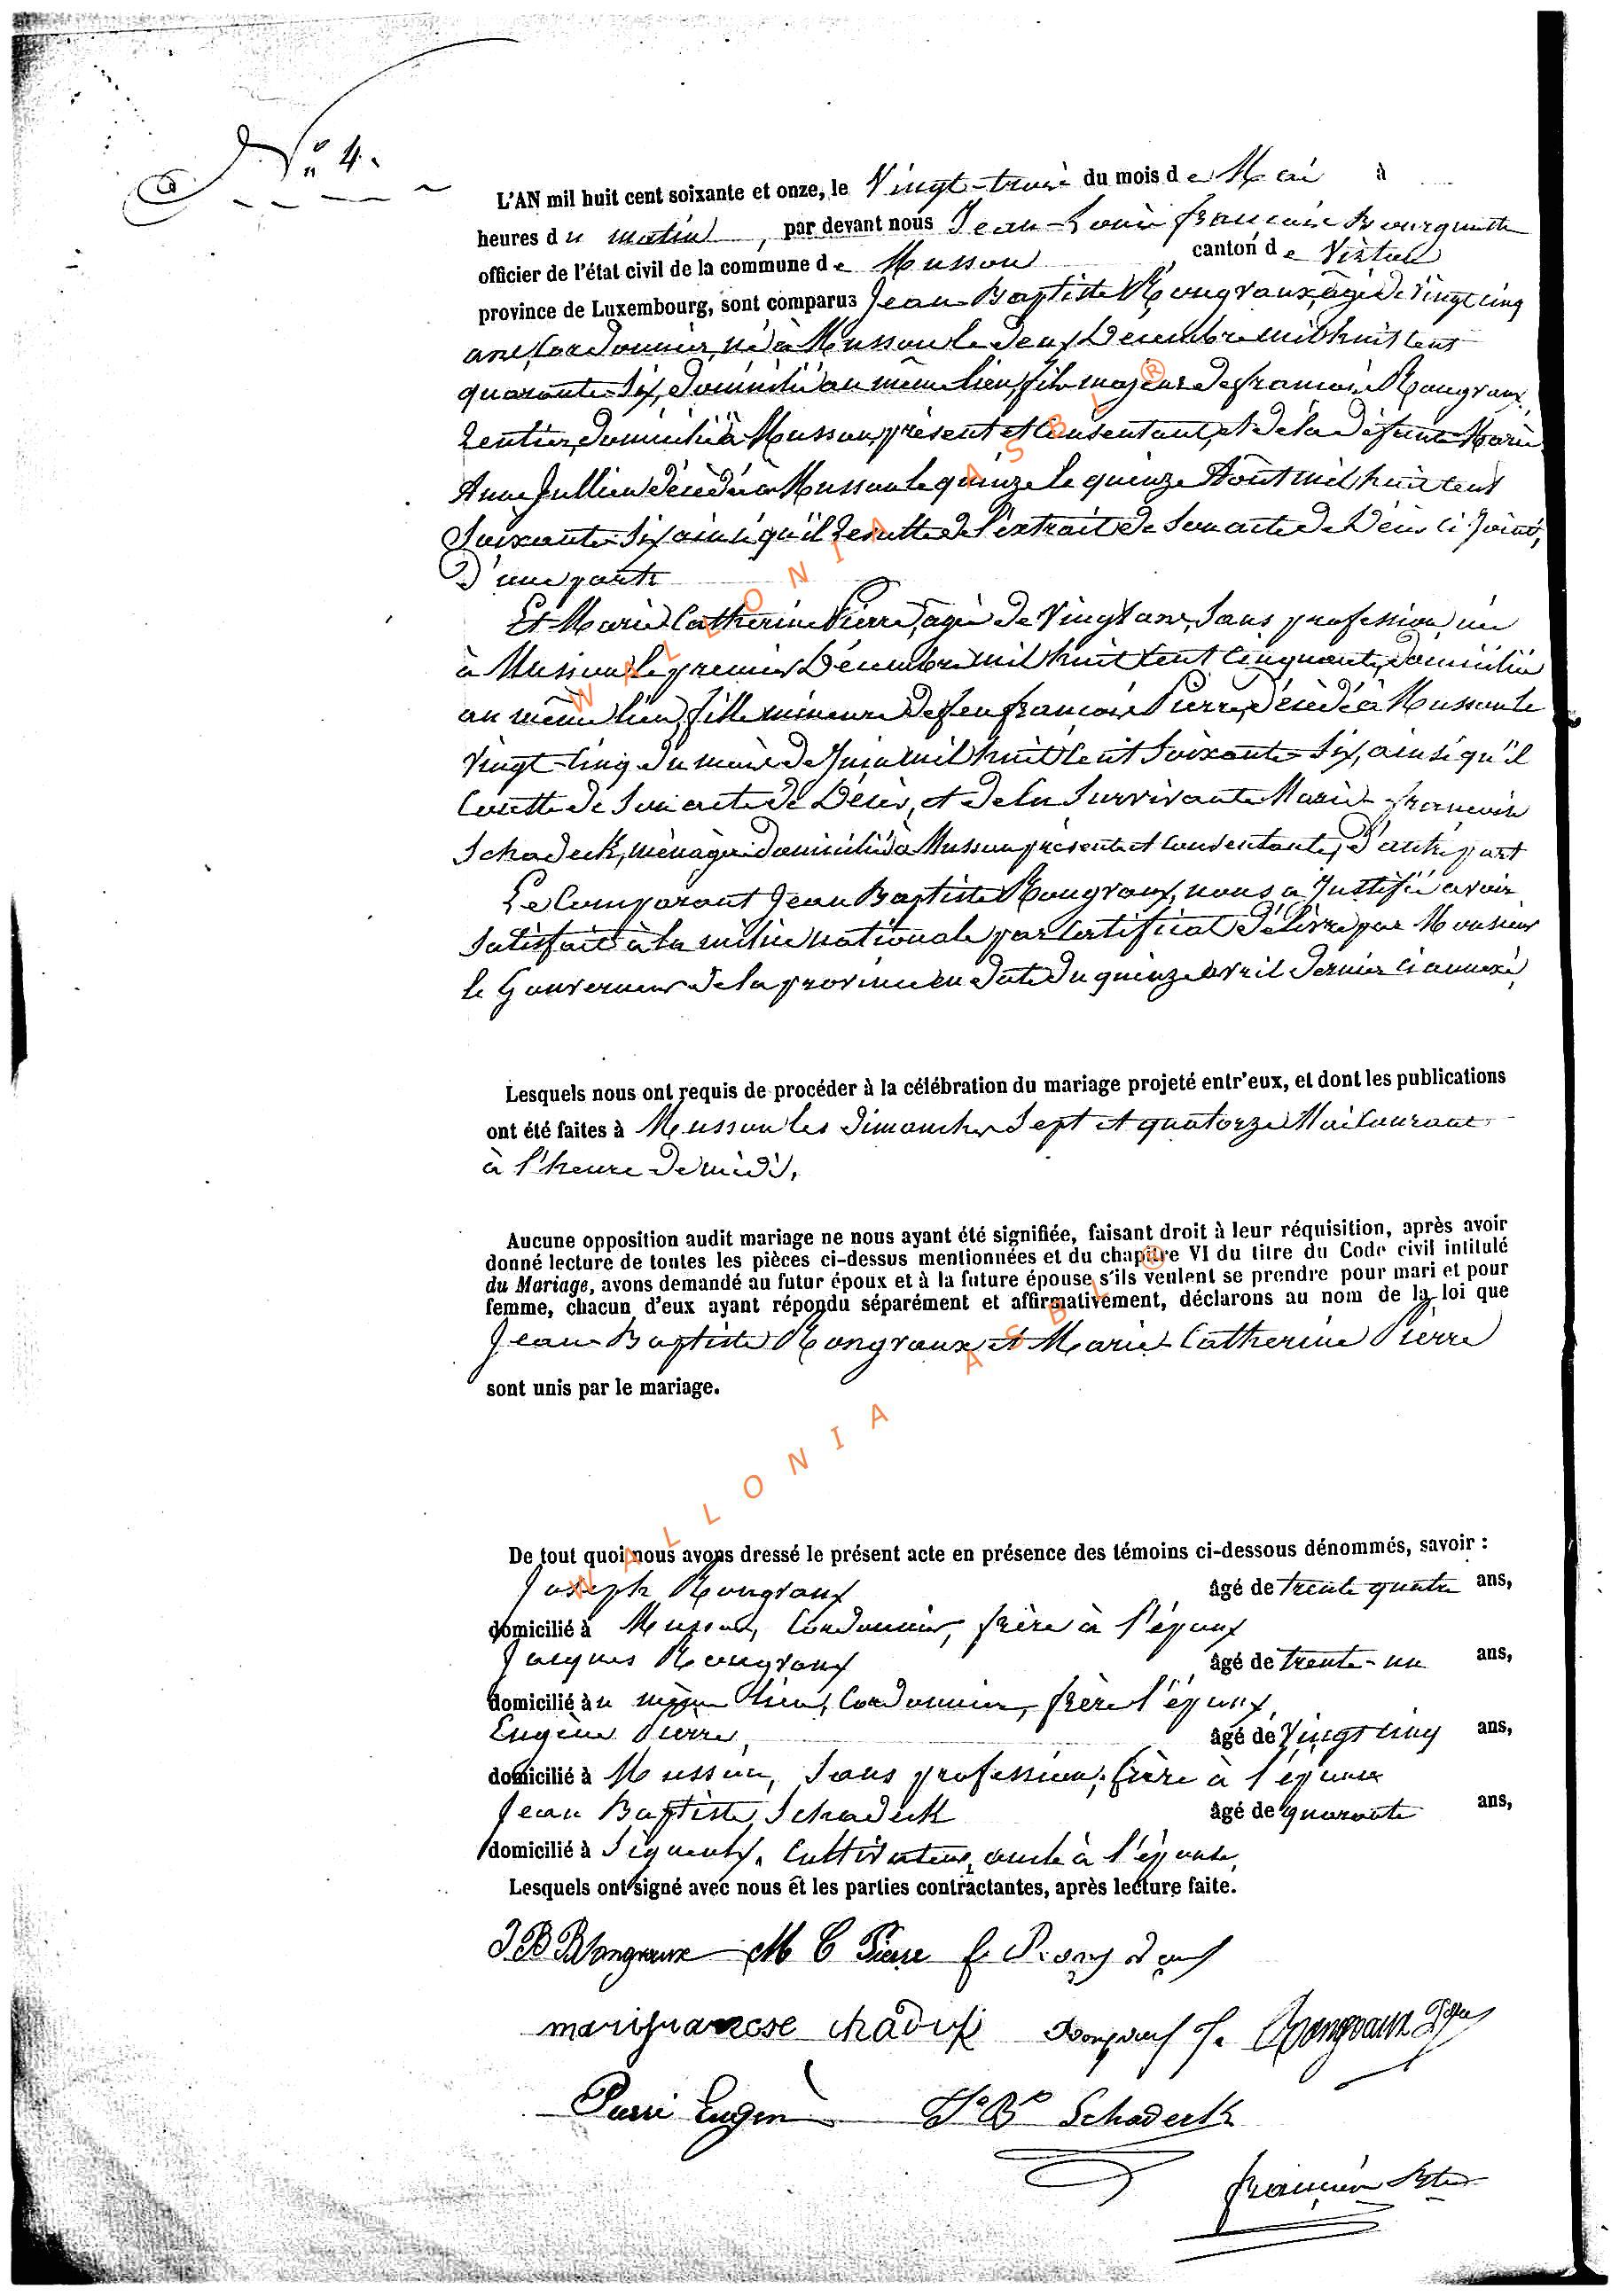 N° 4.
L'AN mil huit cent soixante et onze, le Vingt-trois du mois de Mai à
heures du matin, par devant nous Jean-Louis françois Bourguette
officier de l'état civil de la commune de Musson canton de Virton
province de Luxembourg, sont comparus Jean Baptiste Rongvaux, agé de vingt cinq
ans, Cordonnier, né à Musson le deux Décembre mil huit cent
quarante-six, domicilié au même lieu, fils majeur de françois Rongvaux,
rentier, domicilié à Musson, présent et consentant, et de la défunte Marie
Anne Jullien décédée à Musson le quinze le quinze Août mil huit cent
Soixante-Six ainsi qu'il resulte de l'extrait de son acte de Décès ci joint,
D'une part
Et Marie Catherine Pierre, agée de Vingt ans, Sans profession, née
à Musson le premier Décembre mil huit cent cinquante, domiciliée
au même lieu, fille mineure de feu françois Pierre, décédé à Musson le
vingt-cinq du mois de Juin mil huit cent Soixante-Six, ainsi qu'il
conste de son acte de Décès, et de la Survivante Marie-françoise
Schadeck, ménagère domiciliée à Musson présente et consentante, d'autre part
Le Comparant Jean Baptiste Rongvaux, nous a Justifié avoir
Satisfait à la milice nationale par Certificat délivré par Monsieur
le Gouverneur de la province en date du quinze avril dernier ci annexé,
Lesquels nous ont requis de procéder à la célébration du mariage projeté entr'eux, et dont les publications
ont été faites à Musson les dimanches Sept et quatorze Mai Courant
à l'heure de midi,
Aucune opposition audit mariage ne nous ayant été signifiée, faisant droit à leur réquisition, après avoir
donné lecture de toutes les pièces ci-dessus mentionnées et du chapitre VI du titre du Code civil intitulé
du Mariage, avons demandé au futur époux et à la future épouse s'ils veulent se prendre pour mari et pour
femme, chacun d'eux ayant répondu séparément et affirmativement, déclarons au nom de la loi que
Jean Baptiste Rongvaux et Marie-Catherine Pierre
sont unis par le mariage.
De tout quoi nous avons dressé le présent acte en présence des témoins ci-dessous dénommés, savoir :
Joseph Rongvaux âgé de trente quatre ans,
domicilié à Musson, Cordonnier, frère à l'époux
Jacques Rongvaux âgé de trente-un ans,
domicilié au même lieu, Cordonnier, frère l'époux,
Eugène Pierre, âgé de Vingt cinq ans,
domicilié à Musson, Sans profession, frère à l'épouse
Jean Baptiste Schadeck âgé de quarante ans,
domicilié à Signeulx, Cultivateur, oncle à l'épouse,
Lesquels ont signé avec nous et les parties contractantes, après lecture faite.
J B Rongvaux M C Pierre
marifranose chadek Rongvaux J. Rongvaux
Pierre Eugène J. Bte Schadeck
WALLONIA ASBL ®
WALLONIA ASBL ®